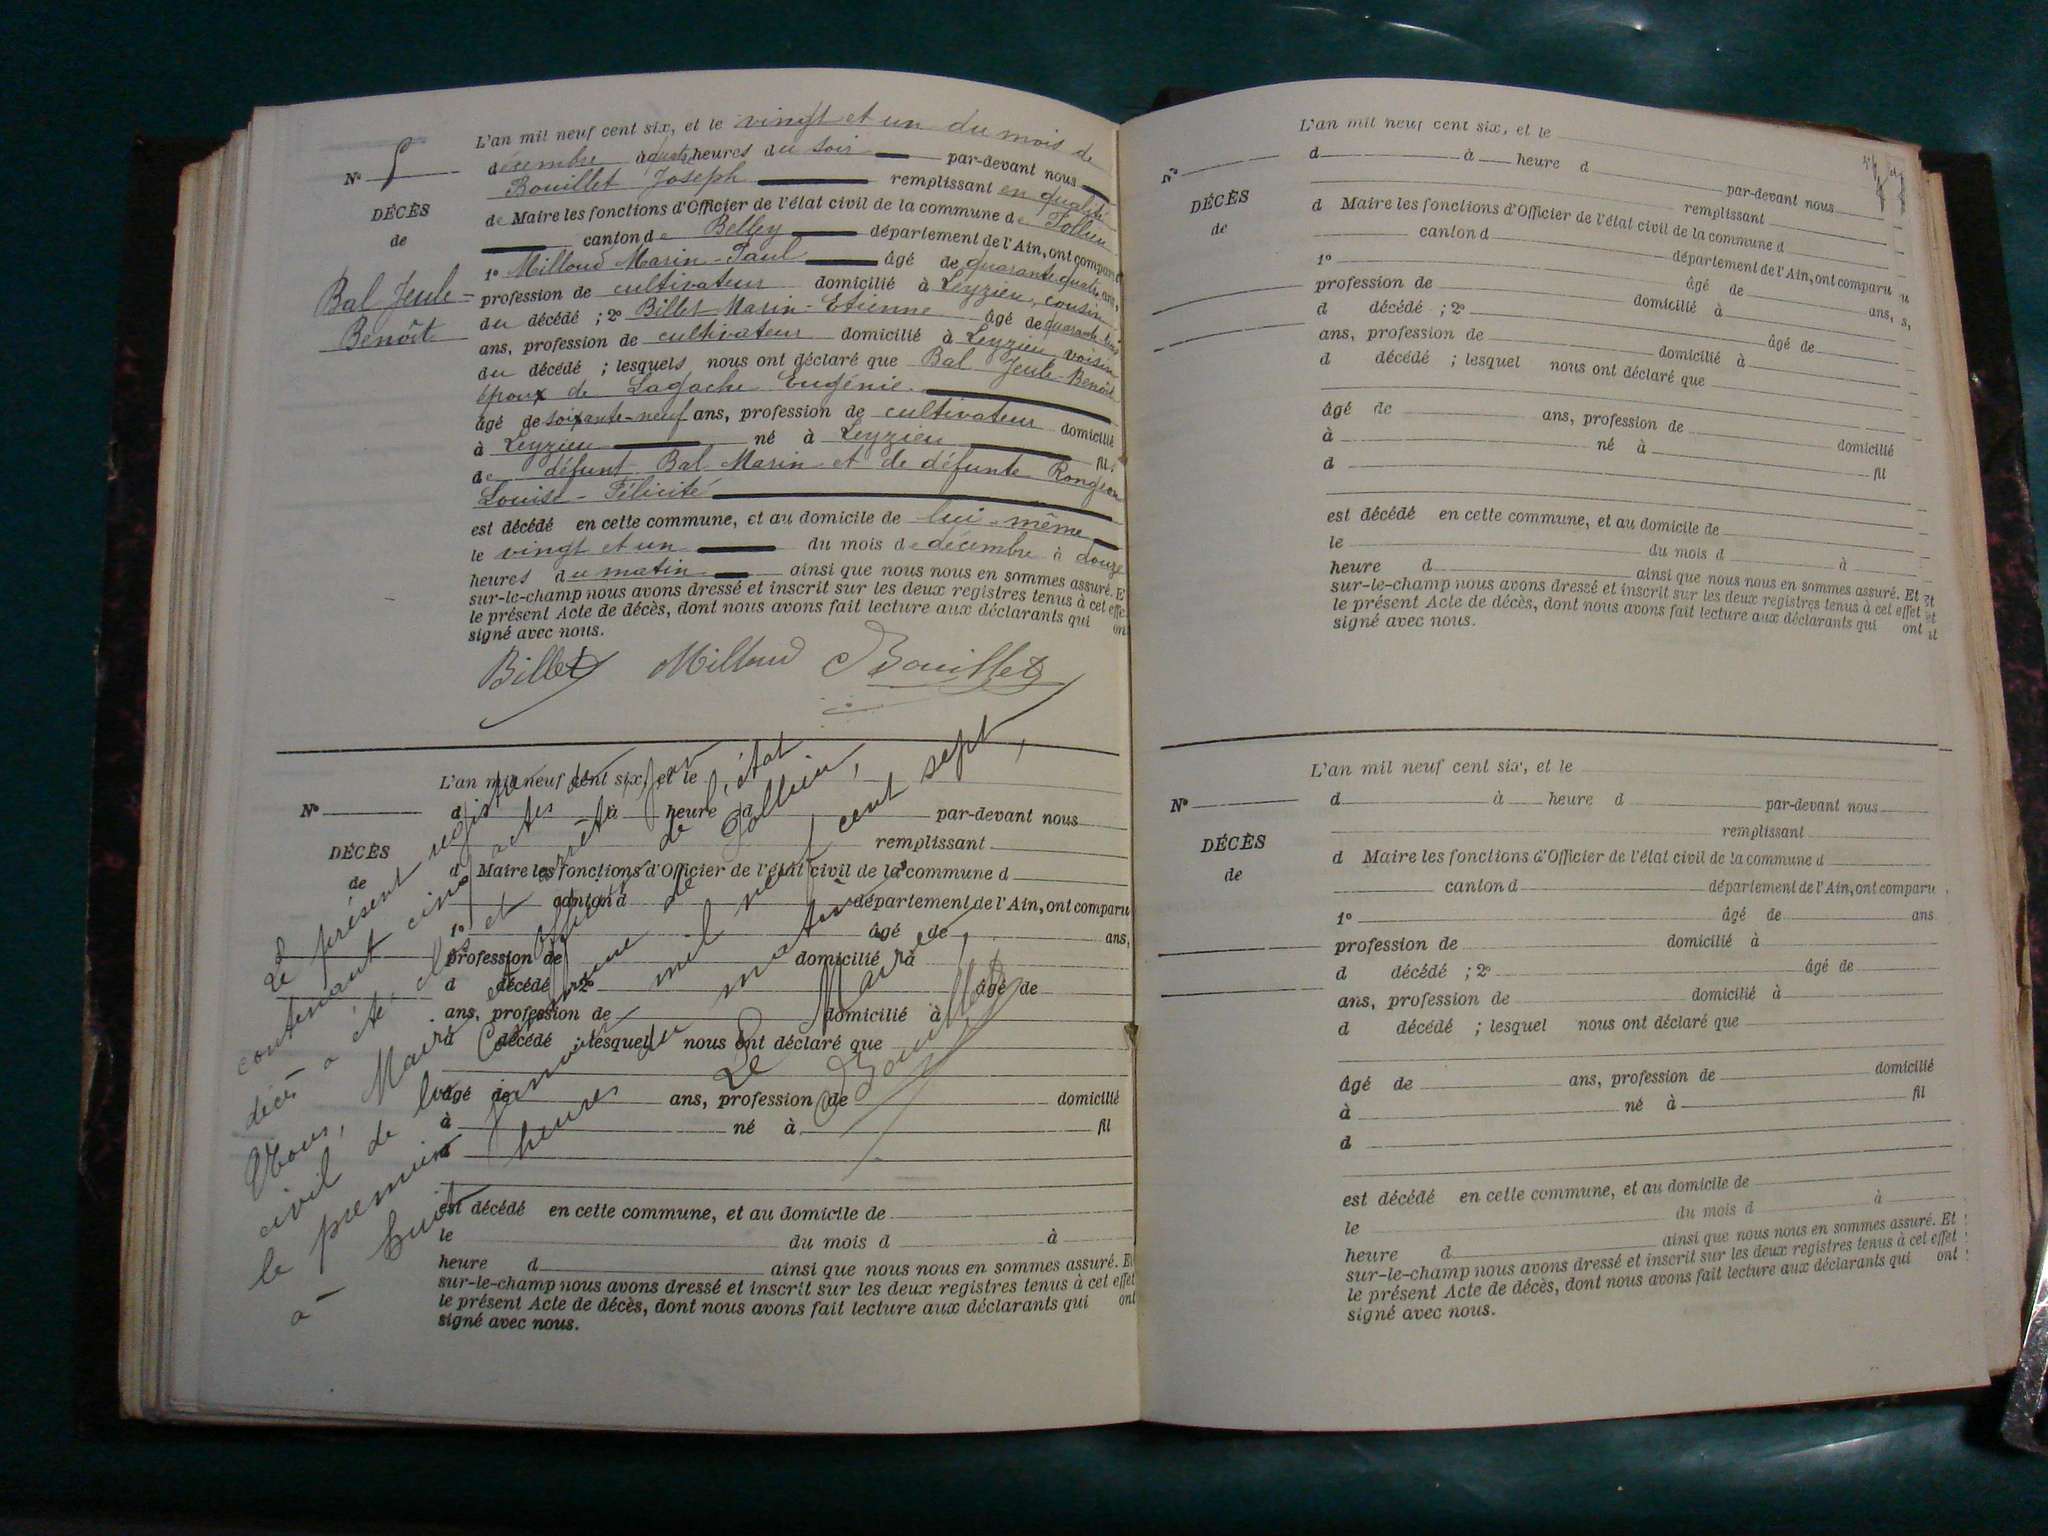 L'an mil neuf cent six, et le vingt et un du mois de
N° 5 décembre à quatre heures du soir par-devant nous
Bouillet Joseph remplissant en qualité
DÉCÈS de Maire les fonctions d'Officier de l'état civil de la commune de Pollieu
de canton de Belley département de l'Ain, ont comparu
1° Milloud Marin-Paul âgé de quarante quatre ans,
Bal Jeule- profession de cultivateur domicilié à Leyzieu, cousin
Benoît du décédé ; 2° Billet Marin-Etienne âgé de quarante
ans, profession de cultivateur domicilié à Leyzieu voisin
du décédé ; lesquels nous ont déclaré que Bal Jeule-Benoît
époux de Lagache Eugénie
âgé de soixante-neuf ans, profession de cultivateur domicilié
à Leyzieu né à Leyzieu fil
de défunt Bal Marin et de défunte Rongeon
Louise-Félicité
est décédé en cette commune, et au domicile de lui-même
le vingt et un du mois de décembre à douze
heures du matin ainsi que nous nous en sommes assuré. E
sur-le-champ nous avons dressé et inscrit sur les deux registres tenus à cet effe
le présent Acte de décès, dont nous avons fait lecture aux déclarants qui on
signé avec nous.
Billet Milloud Bouillet
L'an mil neuf cent six, et le
N° d à heure d par-devant nous
remplissant
DÉCÈS d Maire les fonctions d'Officier de l'état civil de la commune d
de canton d département de l'Ain, ont comparu
1° âgé de ans,
profession de domicilié à
d décédé ; 2° âgé de
ans, profession de domicilié à
d décédé ; lesquel nous ont déclaré que
âgé de ans, profession de domicilié
à né à fil
d
est décédé en cette commune, et au domicile de
le du mois d à
heure d ainsi que nous nous en sommes assuré. Et
sur-le-champ nous avons dressé et inscrit sur les deux registres tenus à cet effet
le présent Acte de décès, dont nous avons fait lecture aux déclarants qui ont
signé avec nous.
Le présent registre
contenant cinq actes de
décès a été clos et arrêté par
Nous, Maire et Officier de l'état
civil de la Commune de Pollieu,
le premier janvier mil neuf cent sept,
à huit heures du matin
Le Maire,
Bouillet
L'an mil neuf cent six, et le
N° d à heure d par-devant nous
remplissant
DÉCÈS d Maire les fonctions d'Officier de l'état civil de la commune d
de canton d département de l'Ain, ont comparu
1° âgé de ans,
profession de domicilié à
d décédé ; 2° âgé de
ans, profession de domicilié à
d décédé ; lesquel nous ont déclaré que
âgé de ans, profession de domicilié
à né à fil
d
est décédé en cette commune, et au domicile de
le du mois d à
heure d ainsi que nous nous en sommes assuré. Et
sur-le-champ nous avons dressé et inscrit sur les deux registres tenus à cet effet
le présent Acte de décès, dont nous avons fait lecture aux déclarants qui ont
signé avec nous.
L'an mil neuf cent six, et le
N° d à heure d par-devant nous
remplissant
DÉCÈS d Maire les fonctions d'Officier de l'état civil de la commune d
de canton d département de l'Ain, ont comparu
1° âgé de ans
profession de domicilié à
d décédé ; 2° âgé de
ans, profession de domicilié à
d décédé ; lesquel nous ont déclaré que
âgé de ans, profession de domicilié
à né à fil
d
est décédé en cette commune, et au domicile de
le du mois d à
heure d ainsi que nous nous en sommes assuré. Et
sur-le-champ nous avons dressé et inscrit sur les deux registres tenus à cet effet
le présent Acte de décès, dont nous avons fait lecture aux déclarants qui ont
signé avec nous.